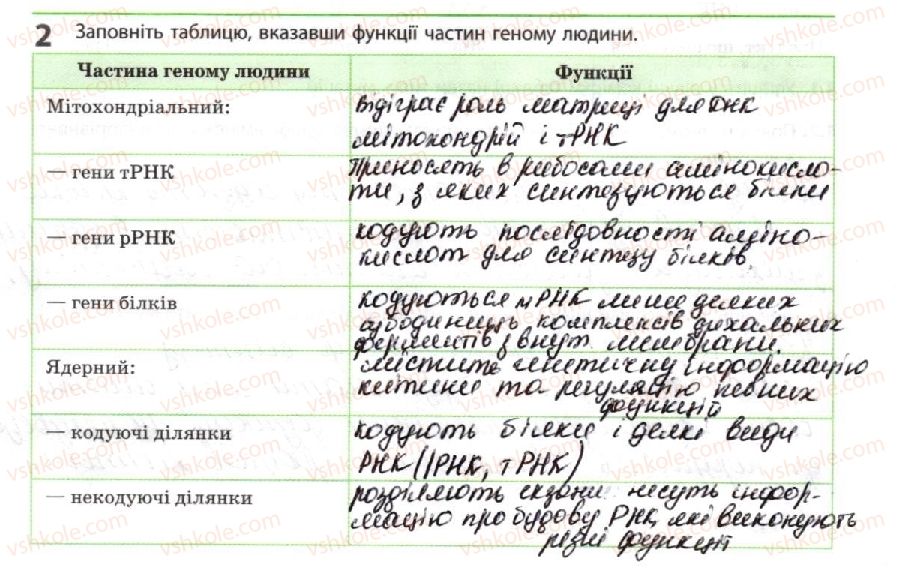 2 Заповніть таблицю, вказавши функції частин геному людини.
Частина геному людини Функції
Мітохондріальний: Відіграє роль матриці для ДНК
мітохондрій і тРНК
— гени тРНК Приносять в рибосоми амінокисло-
ти, з яких синтезуються білки
— гени рРНК кодують послідовності аміно-
кислот для синтезу білків
— гени білків кодуються мРНК лише деяких
субодиниць комплексів дихальних
ферментів з внут. мембрани.
Ядерний: містить генетичну інформацію
клітини та регуляцію певних
функцій
— кодуючі ділянки кодують білки і деякі види
РНК (іРНК, тРНК)
— некодуючі ділянки розділяють екзони несуть інфор-
мацію про будову РНК, які виконують
різні функції
vshkole.com